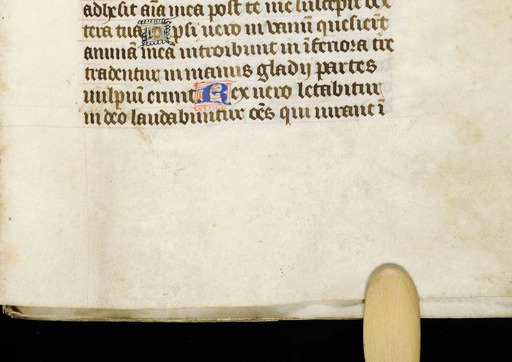 adhesit aīa mea post te me suscepit dex
tera tua Ipsi uero in uanū quesierūt
animā mea introibunt in īferiora tre
tradentur in manus gladij partes
uulpiū erunt Rex uero letabitur
in deo laudabuntur oēs qui iurant ī